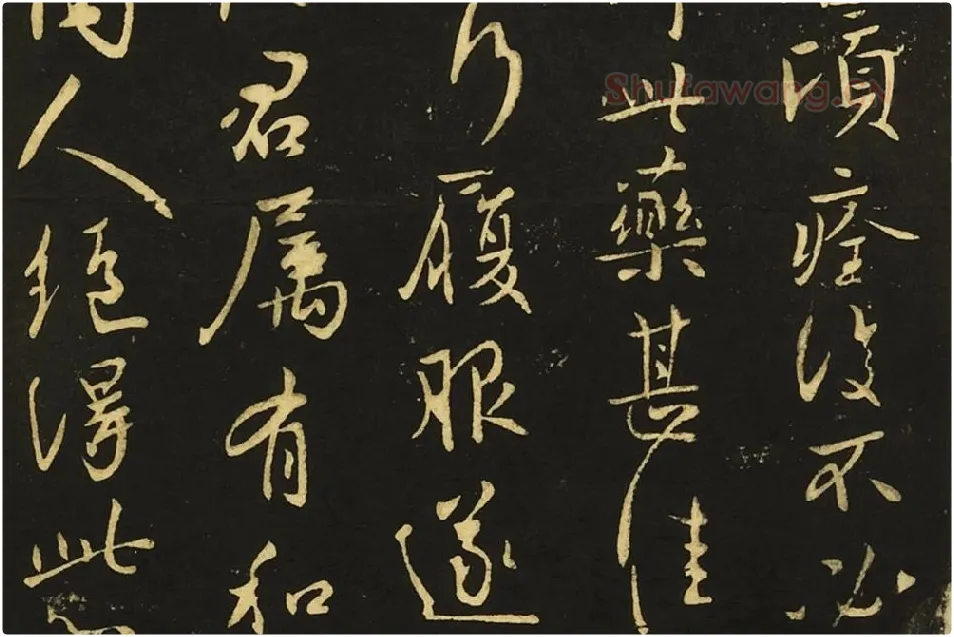 痊復不必
此藥甚佳
行履服遂
君属有和
人絕得此
Shufawang.CN